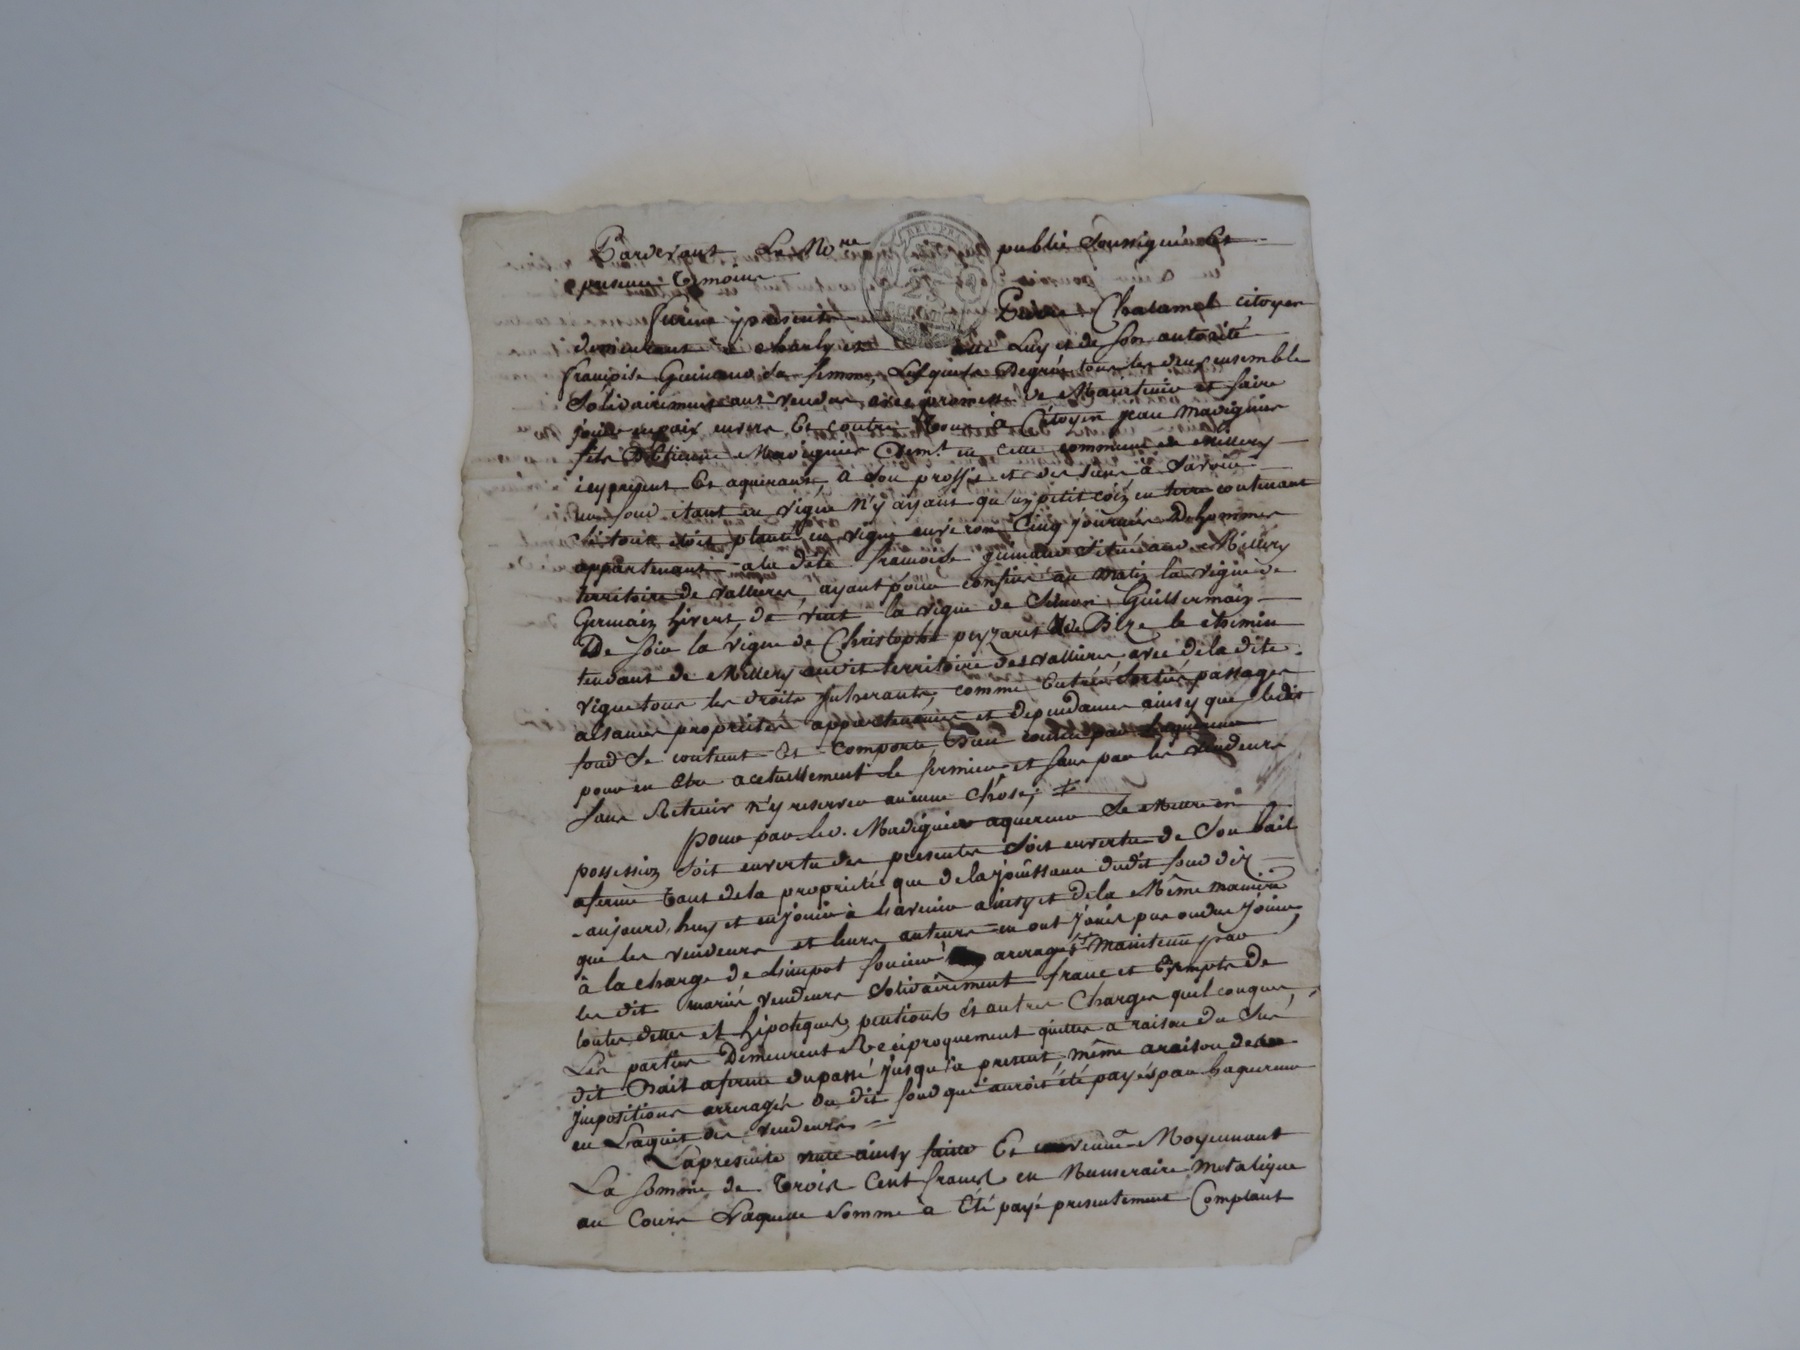 Pardevant Le No.re public Soussigné Et
presence temoins
furent presents Pierre Chatamel citoyen
demeurant a charly et de Luy et de son autorité
françoise Guinand sa femme, Lesquels Degrés tous les deux ensemble
Solidairement ont vendus avec promesse de Maintenir et faire
jouir en paix envers Et contre Tous à Citoyen jean Madignier
fils D'Etienne Madignier Dem.t en cette commune de Millery
icy present Et aquerant, a son proffit et des siens à Savoir
un fond etant en vigne n'y ayant qu'un petit coin en terre contenant
ce qui est planté en vigne environ Cinq journées D'hommes
appartenant a la dite francoise guinand Situé aud. Millery
territoire de vallures, ayant pour confins au matin la vigne de
Germain hivert, de vent la vigne de Simon Guillermain
De soir la vigne de Christophe peyzaret De Bize le chemin
tendant de Millery audit territoire des vallures avec de la dite
vigne tous les droits Inherants, comme Entrée Sorties passages
aisances propriétés appartenances et dependances ainsy que ledit
fond Se contient Et Comporte, Bien connu par Laquereur
pour en Etre actuellement le fermier et sans par les vendeurs
sans Retenir n'y reserver aucune Chose;
pour par led. Madignier aquereur Se Mettre en
possession Soit envertu des presentes Soit envertu de Son bail
aferme tant de la proprieté que de la jouissance dudit fond dez
aujourd,huy et en jouir à Lavenir ainsy et de la Même maniere
que les vendeurs et leurs auteurs en ont jouis pue ou du jouir,
à la charge de Limpot foncier arreragés Maintenu par
les dit mariés vendeurs Solidairement franc et Exempts de
toutes dettes et hipoteques, pentions et autres Charges quelconques,
Les parties Demeurent Reciproquement quittes a raison du Sus
dit Bail aferme du passé jusqu'à present, même a raison des
jmpositions arreragés du dit fond qui auroit été payés par Laquereur
en Laquit des vendeurs =
La presente vente ainsy faite Et convenue Moyennant
La Somme de Trois Cent francs en Numeraire Metalique
au Cours Laquelle Somme a Eté payé presentement Comptant